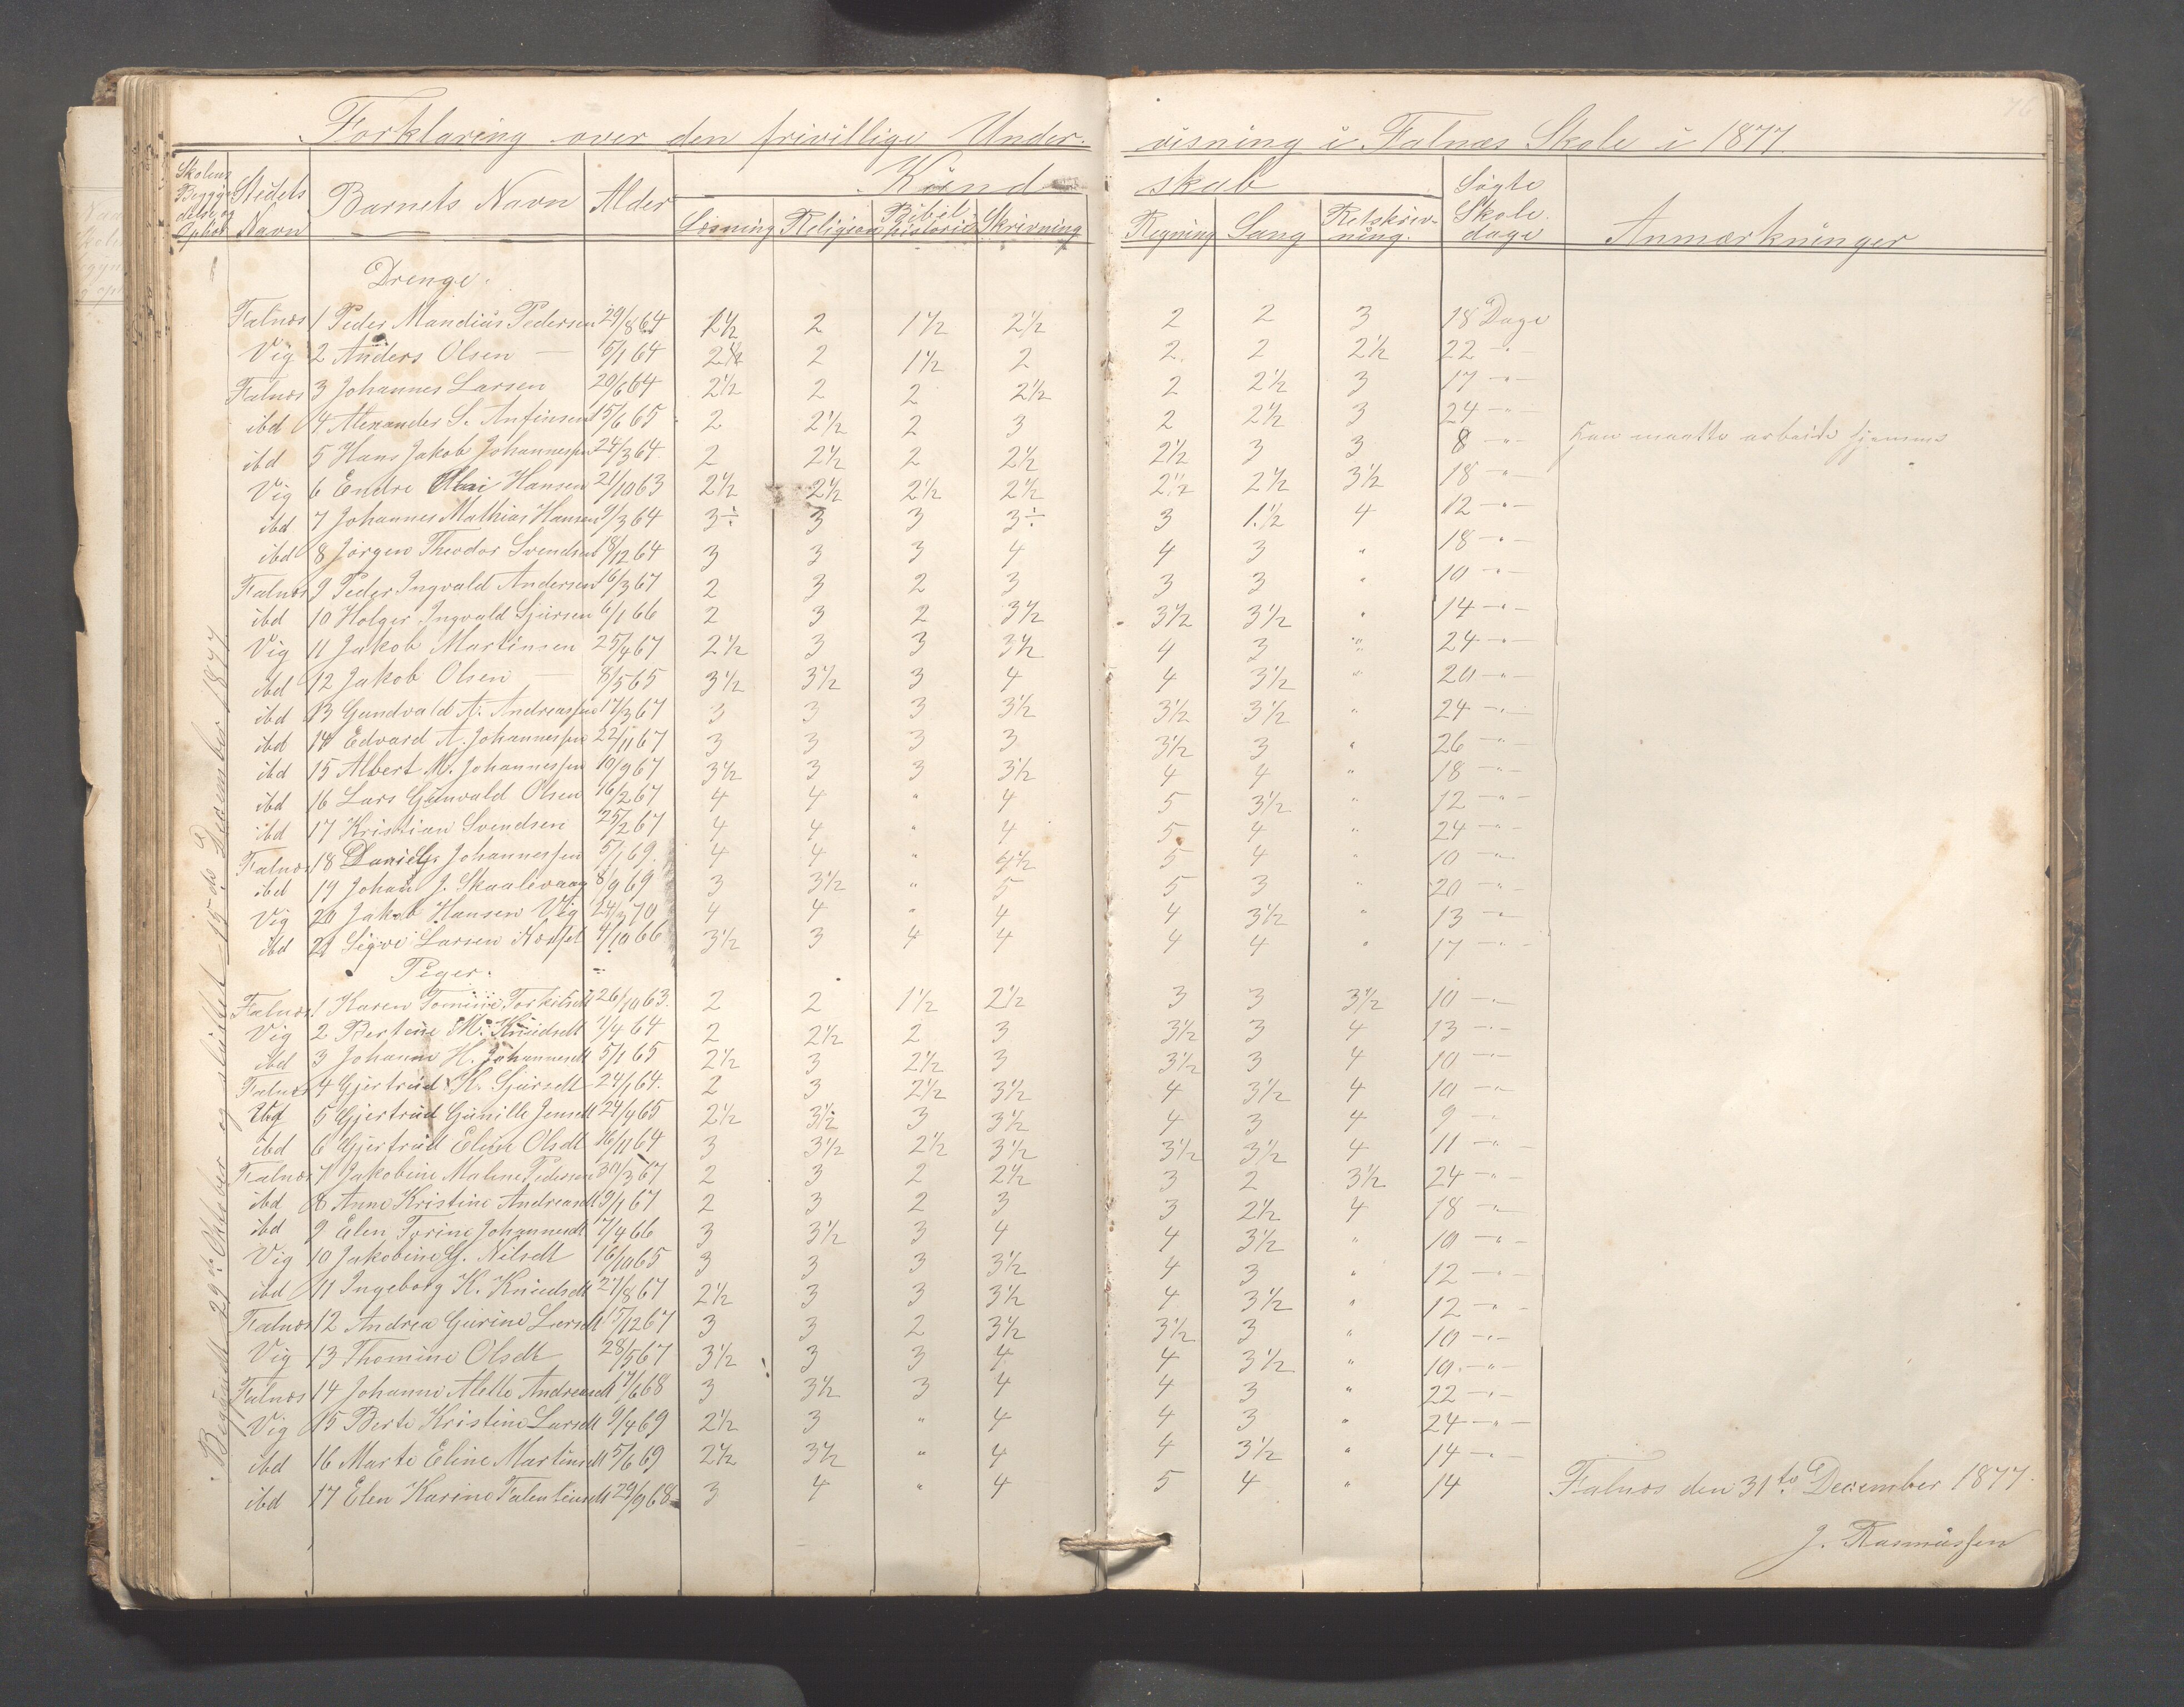 Forklaring over den frivillige Undervisning i Falnæs Skole i 1877.
76
Skolens Begyndelse og Ophør | Stedets Navn | Barnets Navn | Alder | Kundskab | Søgte Skoledage | Anmærkninger
Læsning | Religion | Bibelhistorie | Skrivning | Regning | Sang | Retskrivning.
Begyndt 29de Oktober og sluttet 15de December 1877
Drenge.
Falnæs 1 Peder Mandius Pedersen 29/8 64 1½ 2 1½ 2½ 2 2 3 18 Dage
Vig 2 Anders Olsen — 5/1 64 2½ 2 1½ 2 2 2 2½ 22 —"—
Falnæs 3 Johannes Larsen 20/6 64 2½ 2 2 2½ 2 2½ 3 17 —"—
ibd 4 Alexander S. Anfinsen 15/6 65 2 2½ 2 3 2 2½ 3 24 —"
ibd 5 Hans Jakob Johannessen 24/3 64 2 2½ 2 2½ 2½ 3 3 8 —"— Han maatte arbeide hjemme
Vig 6 Endre Hansen 21/10 63 2½ 2½ 2½ 2½ 2½ 2½ 3½ 18 —"—
ibd 7 Johannes Mathias Hansen 9/3 64 3÷ 3 3 3÷ 3 1½ 4 12 —"—
ibd 8 Jørgen Theodor Svendsen 18/12 64 3 3 3 4 4 3 " 18 —"—
Falnæs 9 Peder Ingvald Andersen 16/3 67 2 3 2 3 3 3 " 10 —"—
ibd 10 Holger Ingvald Sjursen 6/1 66 2 3 2 3½ 3½ 3½ " 14 —"—
Vig 11 Jakob Martinsen 25/4 67 2½ 3 3 3½ 4 3 " 24 —"—
ibd 12 Jakob Olsen — 8/5 65 3½ 3½ 3 4 4 3½ " 20 —"—
ibd 13 Gundvald A. Andreassen 17/3 67 3 3 3 3½ 3½ 3½ " 24 —"—
ibd 14 Edvard A. Johannessen 22/11 67 3 3 3 3 3½ 3 " 26 —"—
ibd 15 Albert M. Johannessen 10/9 67 3½ 3 3 3½ 4 4 " 18 —"—
ibd 16 Lars Gunvald Olsen 16/2 67 4 4 " 4 5 3½ " 12 —"—
ibd 17 Kristian Svendsen 25/2 67 4 4 " 4 5 4 " 24 —"—
Falnæs 18 Daniel G. Johannessen 5/1 69. 4 4 " 4½ 5 4 " 10 —"—
ibd 19 Johan J. Skaalevaag 8/9 69 3 3½ " 5 5 3 " 20 —"—
Vig 20 Jakob Hansen Vig 24/3 70 4 4 " 4 4 3½ " 13 —"—
ibd 21 Sigve Larsen 4/10 66 3½ 3 4 4 4 4 " 17 —"—
Piger.
Falnæs 1 Karen Tomine Torkilsdt 26/10 63. 2 2 1½ 2½ 3 3 3½ 10 —"—
Vig 2 Bertine M. Knudsdt 1/4 64 2 2½ 2 3 3½ 3 4 13 —"—
ibd 3 Johanne H. Johannesdt 5/1 65 2½ 3 2½ 3 3½ 3 4 10 —"—
Falnæs 4 Gjertrud K. Sjursdt 24/1 64. 2 3 2½ 3½ 4 3½ 4 10 —"—
Vig 5 Gjertrud Gunille Jensdt 24/4 65 2½ 3½ 3 3½ 4 3 4 9 —"
ibd 6 Gjertrud Eline Olsdt 16/11 64 3 3½ 2½ 3½ 3½ 3½ 4 11 —"—
Falnæs 7 Jakobine Maline Pedersen 30/3 67 2 3 2 2½ 3 2 3½ 24 —"—
ibd 8 Anne Kristine Andreasdt 9/1 67 2 3 2 3 3 2½ 4 18 —"—
ibd 9 Elen Torine Johannesdt 17/4 66 3 3½ 3 4 4 3½ " 10 —"—
Vig 10 Jakobine G. Nilsdt 16/10 65 3 3 3 3½ 4 3 " 12 —"—
ibd 11 Ingeborg K. Knudsdt 27/8 67 2½ 3 3 3½ 4 3½ " 12 —"—
Falnæs 12 Andrea Gurine Larsdt 15/12 67 3 3 2 3½ 3½ 3 " 10 —"—
Vig 13 Thomine Olsdt 28/5 67 3½ 3 3 4 4 3½ " 10 —"—
Falnæs 14 Johanne Alette Andreasdt 17/6 68 3 3½ 3 4 4 3 " 22 —"—
Vig 15 Berte Kristine Larsdt 9/4 69 2½ 3 " 4 4 3 " 24 —"—
ibd 16 Marte Eline Martinsdt 5/6 69 2½ 3½ " 4 4 3½ " 14 —"—
ibd 17 Elen Karine Falentinsdt 29/9 68 3 4 " 4 5 4 " 14
Falnæs den 31te December 1877.
J. Rasmussen